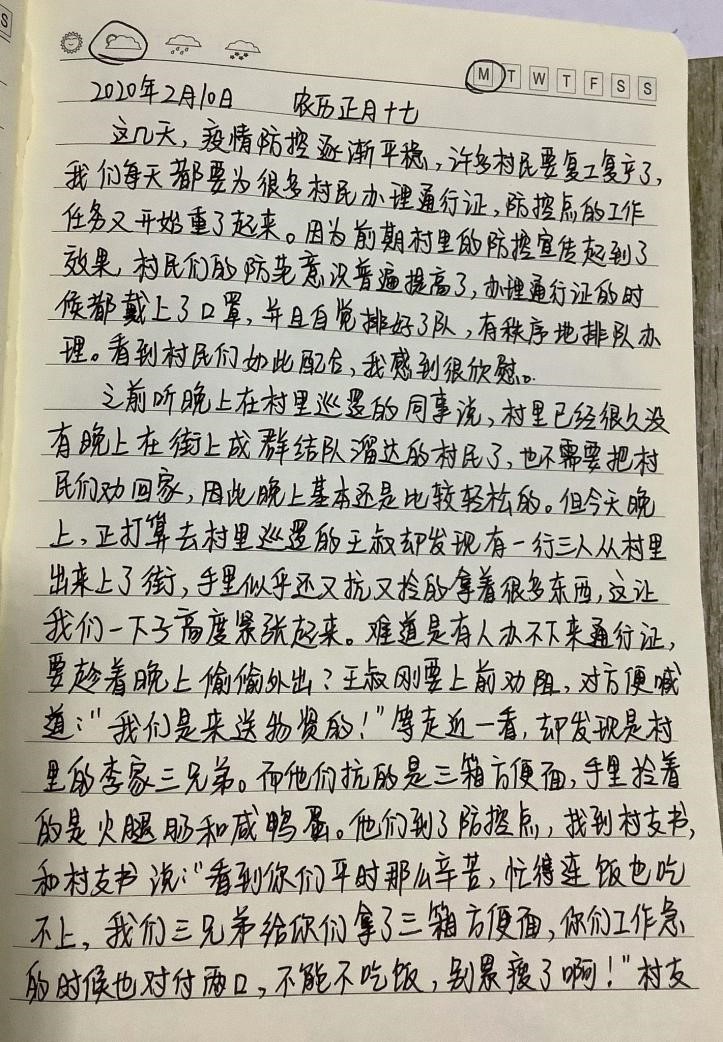 S
M T W T F S S
2020年2月10日 农历正月十七
这几天，疫情防控逐渐平稳，许多村民要复工复产了，
我们每天都要为很多村民办理通行证，防控点的工作
任务又开始重了起来。因为前期村里的防控宣传起到了
效果，村民们的防范意识普遍提高了，办理通行证的时
候都戴上了口罩，并且自觉排好了队，有秩序地排队办
理。看到村民们如此配合，我感到很欣慰。
之前听晚上在村里巡逻的同事说，村里已经很久没
有晚上在街上成群结队溜达的村民了，也不需要把村
民们劝回家，因此晚上基本还是比较轻松的。但今天晚
上，正打算去村里巡逻的王叔却发现有一行三人从村里
出来上了街，手里似乎还又抗又拎的拿着很多东西，这让
我们一下子高度紧张起来。难道是有人办不下来通行证，
要趁着晚上偷偷外出？王叔刚要上前劝阻，对方便喊
道：“我们是来送物资的！”等走近一看，却发现是村
里的李家三兄弟。而他们抗的是三箱方便面，手里拎着
的是火腿肠和咸鸭蛋。他们到了防控点，找到村支书，
和村支书说：“看到你们平时那么辛苦，忙得连饭也吃
不上，我们三兄弟给你们拿了三箱方便面，你们工作急
的时候也对付两口，不能不吃饭，别累瘦了啊！”村支